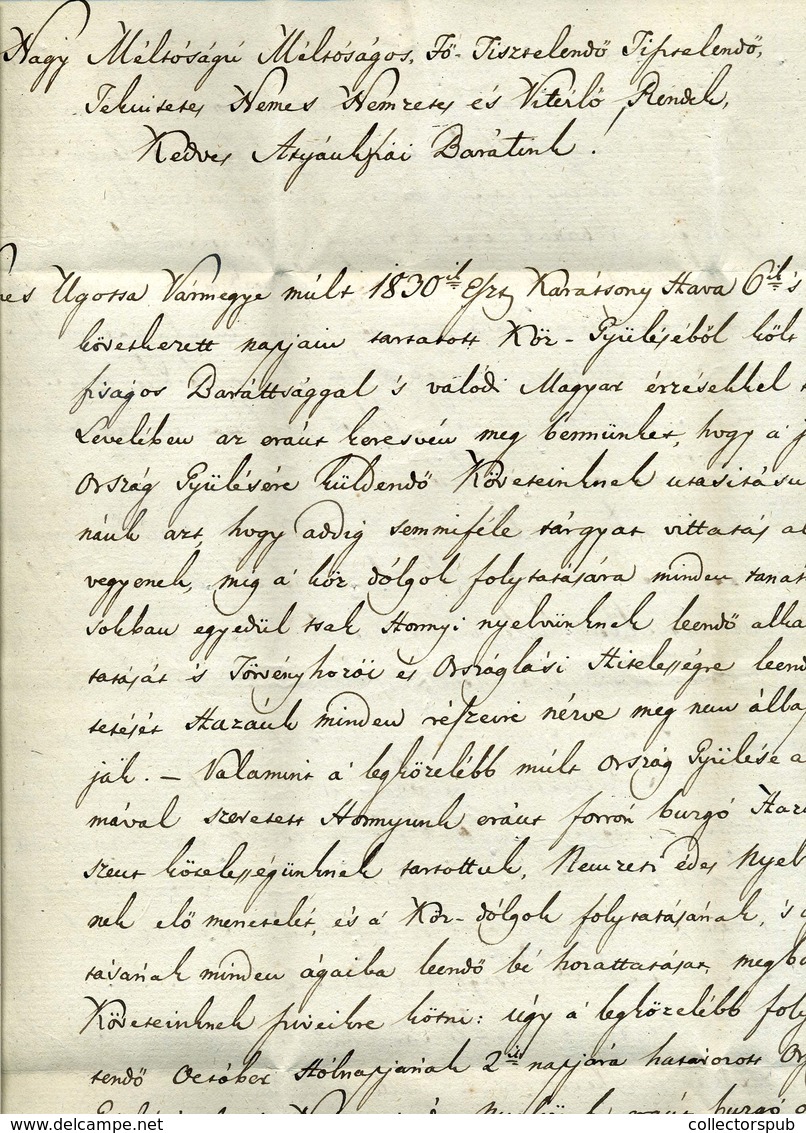 Nagy Méltóságú Méltóságos, Fő-Tisztelendő Tisztelendő,
Tekintetes Nemes Nemzetes és Vitézlő Rendek,
Kedves Atyánkfiai Barátink!
Ugotsa Vármegye múlt 1830ik Eszt. Karátsony Hava 6ik 's
következett napjain tartatott Köz-Gyűléséből költ
fiságos Baráttsággal 's valódi Magyar érzésekkel
Levelében az eránt keresvén meg bennünket, hogy a' j
Ország Gyűlésére küldendő Követeinknek utasításu
nánk azt, hogy addig semmiféle tárgyat vittatás al
vegyenek, míg a' köz dólgok folytatására minden tanáts
sokban egyedül tsak Honnyi nyelvünknek leendő alka
tatását is Törvényhozói és Országlási Hitelességre leend
tetését Hazánk minden részeire nézve meg nem állap
ják. – Valamint a' legközelébb múlt Ország Gyűlése a
mával szeretett Honnyunk eránt forrón buzgó Haza
szent kötelességünknek tartottuk, Nemzeti édes Nyelv
nek elő menetelét, és a' Köz-dólgok fólytatásának, 's
tásának minden ágaiba leendő bé hozattatását, megbo
Követeinknek sziveikre kötni: úgy a' legközelébb foly
tendő October Hólnapjának 2ik napjára határozott Or
www.delcampe.net
collectorspub